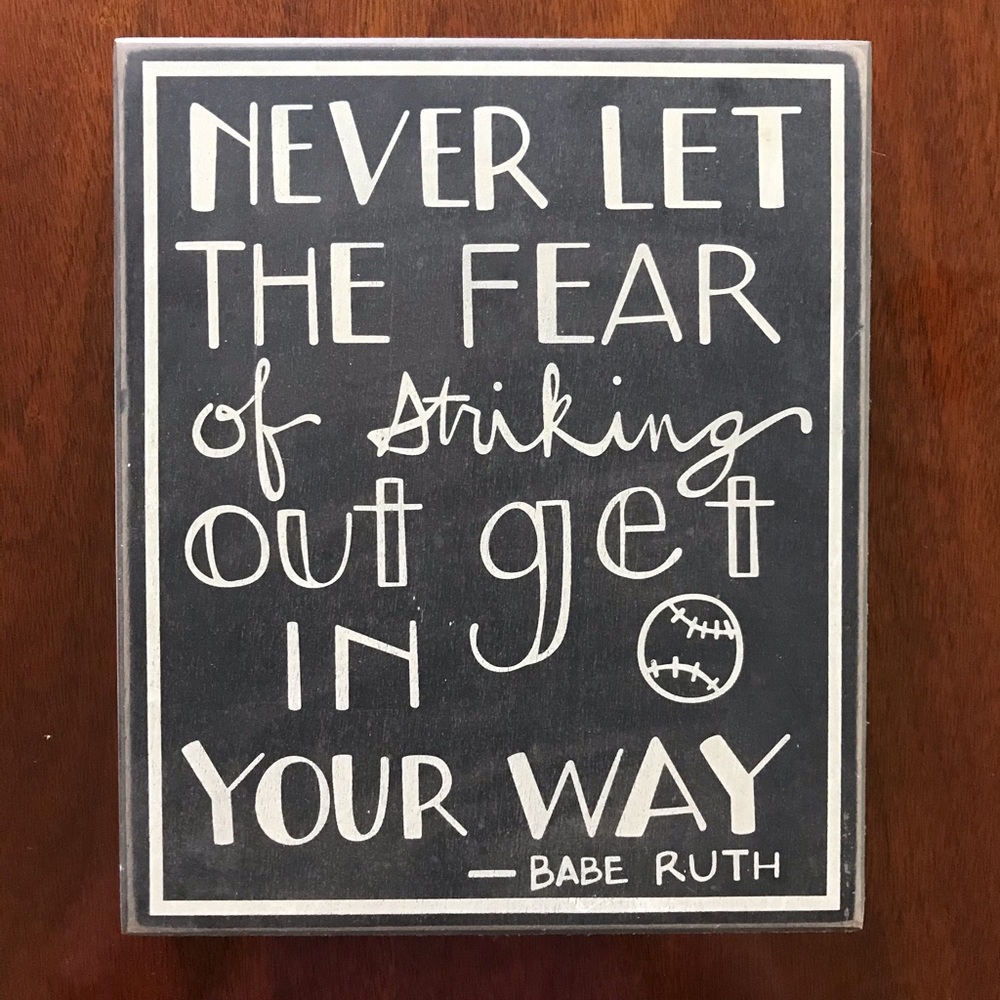 NEVER LET
THE FEAR
of striking
out get
IN
YOUR WAY
—BABE RUTH